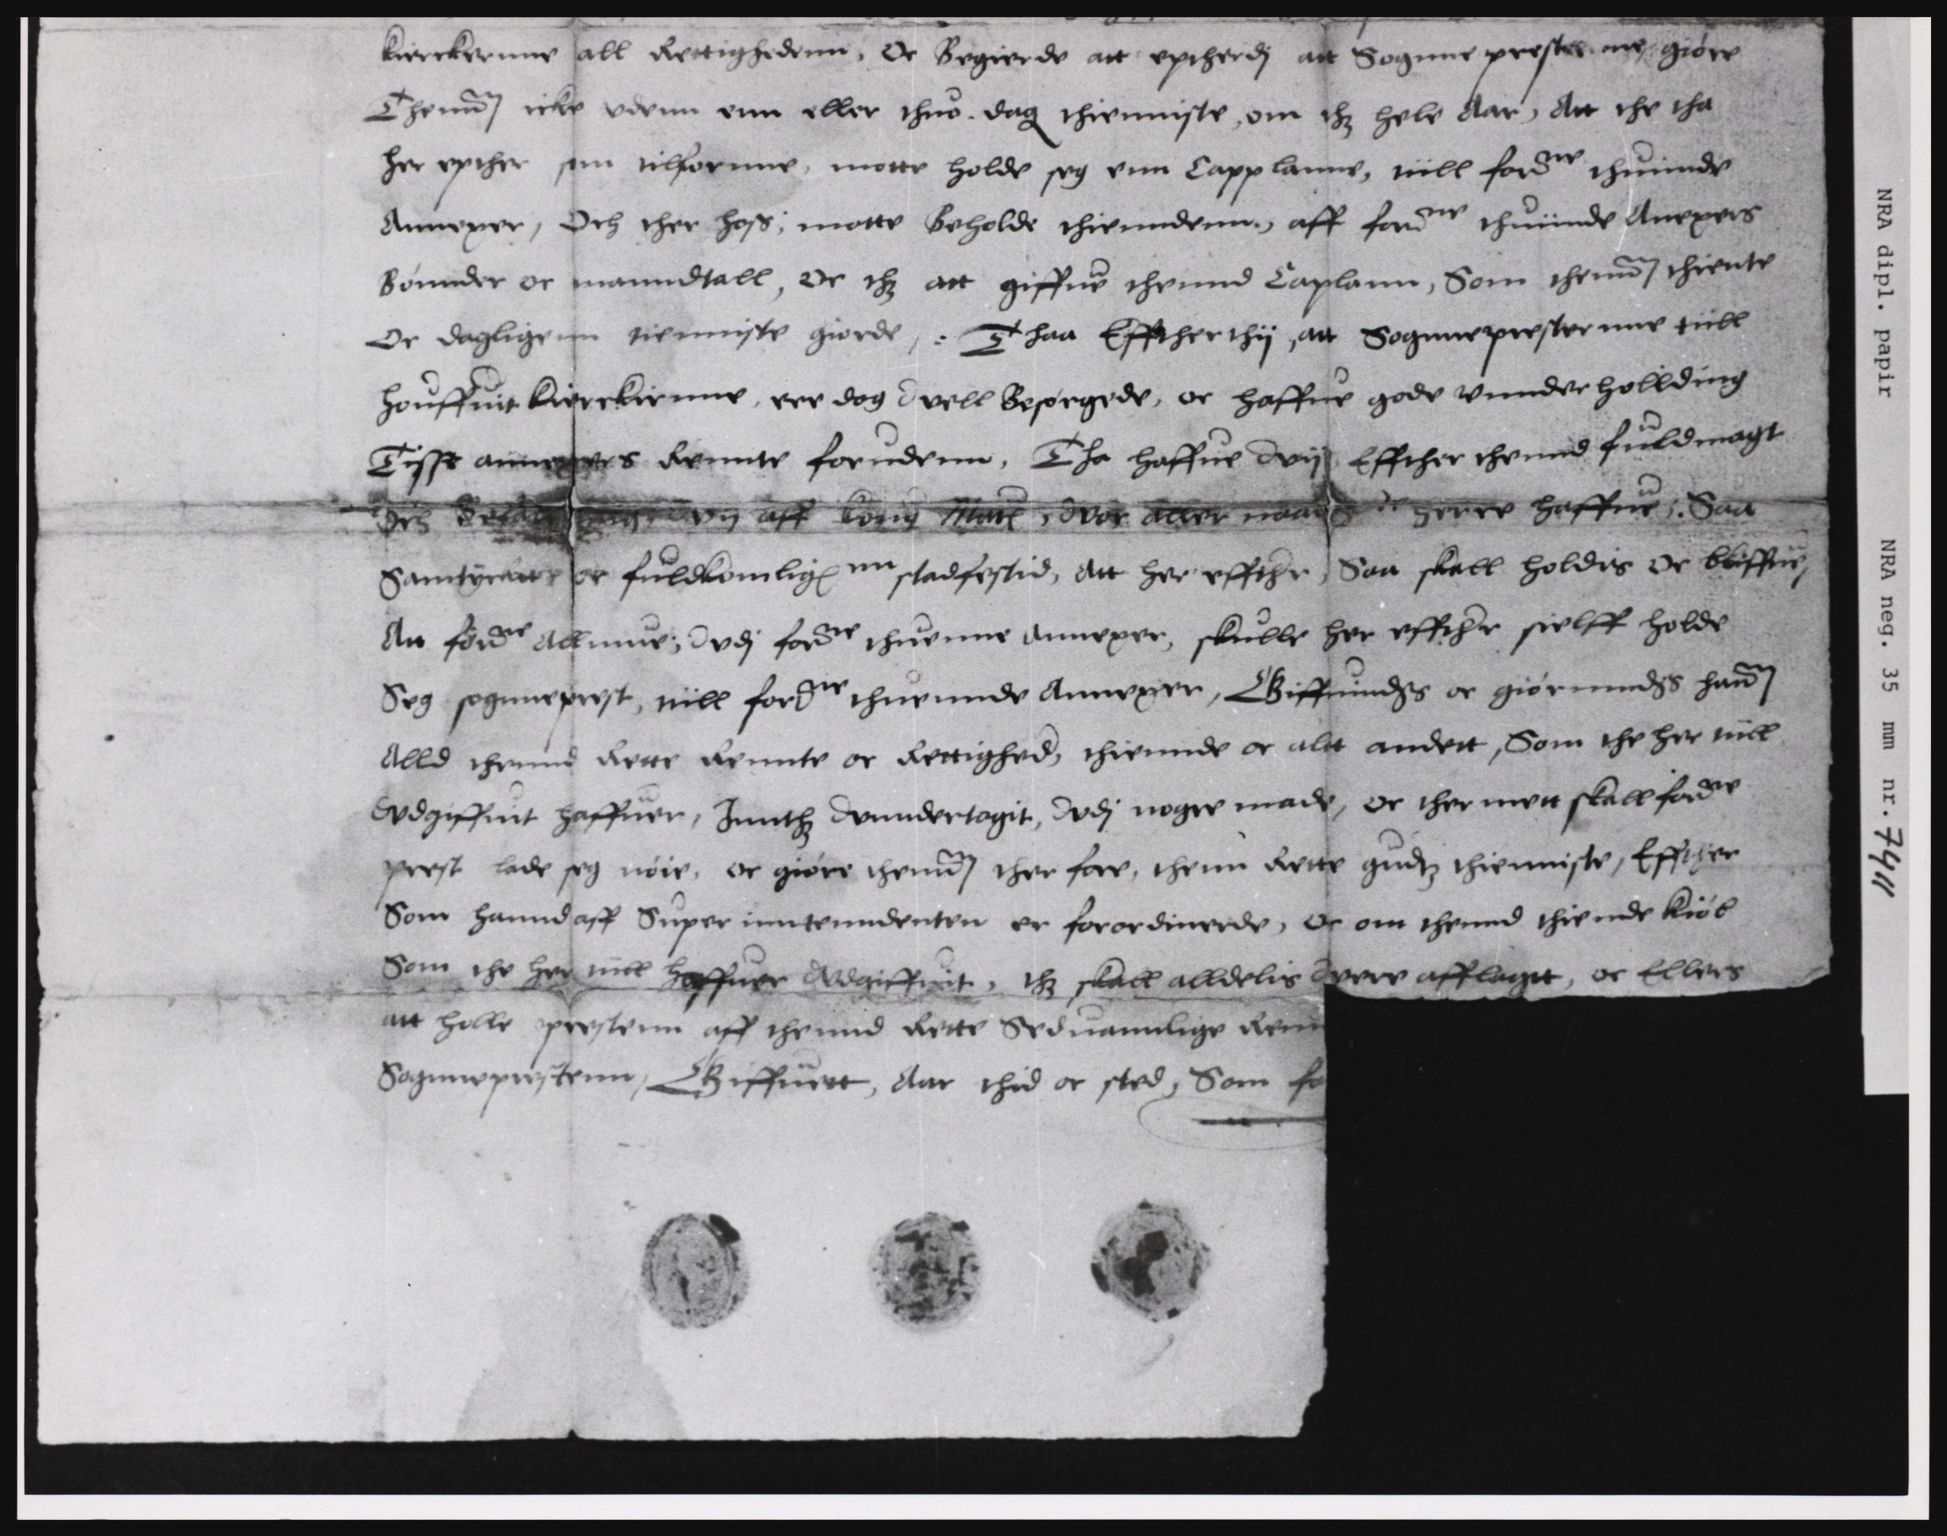 kierckernne all Rettighedenn, Oc Begierde att eptherdj att Sognne presterne, giöre
Themm icke vdenn enn eller thuo dag thienniste, om thz hele Aar, Att the tha
her epther som tilfornne, motte holde seg enn Capplanne, tiill fordne thuinde
Annexer, Och ther hoss, motte Beholde thienndenn, aff fordne thuinde Anexers
Bönnder oc manndtall, Oc thz att giffue thennd Caplann, Som themm thiente
Oc dagligenn tienniste giorde, Thaa Effther thij, att Sognnepresternne tiill
houffuit kierckernne, ere dog vell Besorgede, oc haffue gode vnnderholllding
Tisse annexers Rennte forudenn, Tha haffue vij Effther thennd fuldmagt
Och vij aff kong Matz, vor aller naad herre haffue, Saa
Samtyckt oc fuldkomligenn stadfestid, Att her effther, Saa skall holdis Oc bliffue,
Att fordne Allmue, vdj fordne thuenne Annexer, skulle her effther sielff holde
Seg sognneprest, tiill fordne thuennde Annexer, Giffuindes oc giörinndes hanm
Alld thennd Rette Rennte oc Rettighed, thiennde oc altt andett, Som the her tiill
vdgiffuit haffuer, Inntthz vnndertagit, vdj nogre made, oc ther mett skall fordne
prest lade seg nöie, oc giöre themm ther fore, thenn Rette gudtz thienniste, Effther
Som hannd aff Superinntenndenten er forordinerde, Oc om thennd thiende kiöb
Som the her tiill haffuer vdgiffuit, thz skall alldelis vere afflagtt, oc Ellers
att holle prestenn aff thennd Rette Seduannlige Renn
Sognneprestenn, Giffuett, Aar thid oc sted, Som fo
NRA dipl. papir NRA neg. 35 mm nr. 7411